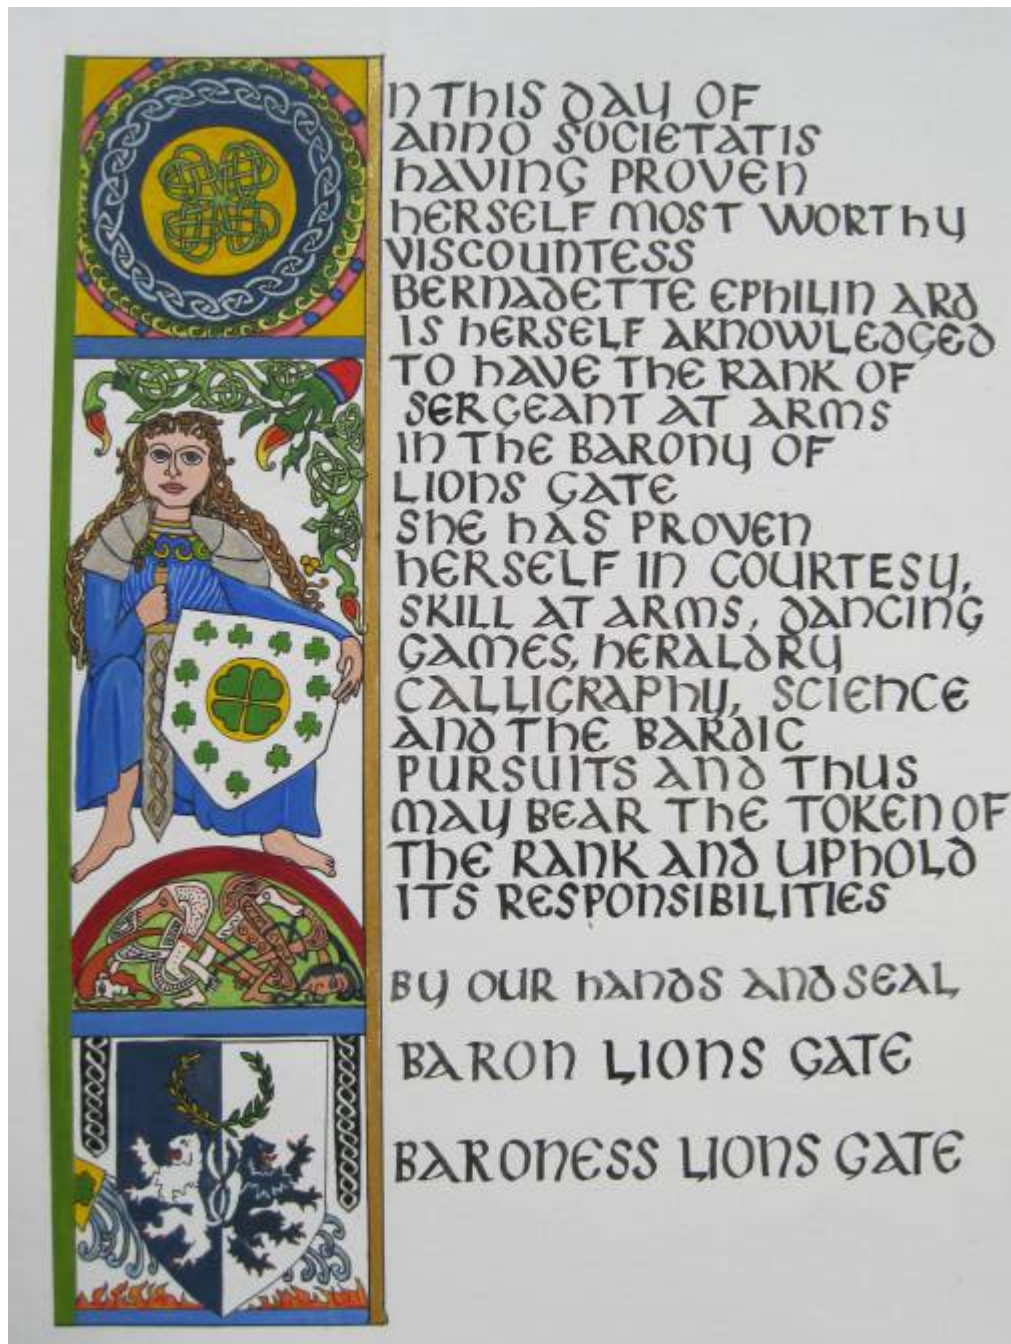 N THIS DAY OF
ANNO SOCIETATIS
HAVING PROVEN
HERSELF MOST WORTHY
VISCOUNTESS
BERNADETTE EPHILIN ARD
IS HERSELF AKNOWLEDGED
TO HAVE THE RANK OF
SERGEANT AT ARMS
IN THE BARONY OF
LIONS GATE
SHE HAS PROVEN
HERSELF IN COURTESY,
SKILL AT ARMS, DANCING
GAMES, HERALDRY
CALLIGRAPHY, SCIENCE
AND THE BARDIC
PURSUITS AND THUS
MAY BEAR THE TOKEN OF
THE RANK AND UPHOLD
ITS RESPONSIBILITIES
BY OUR HANDS AND SEAL
BARON LIONS GATE
BARONESS LIONS GATE